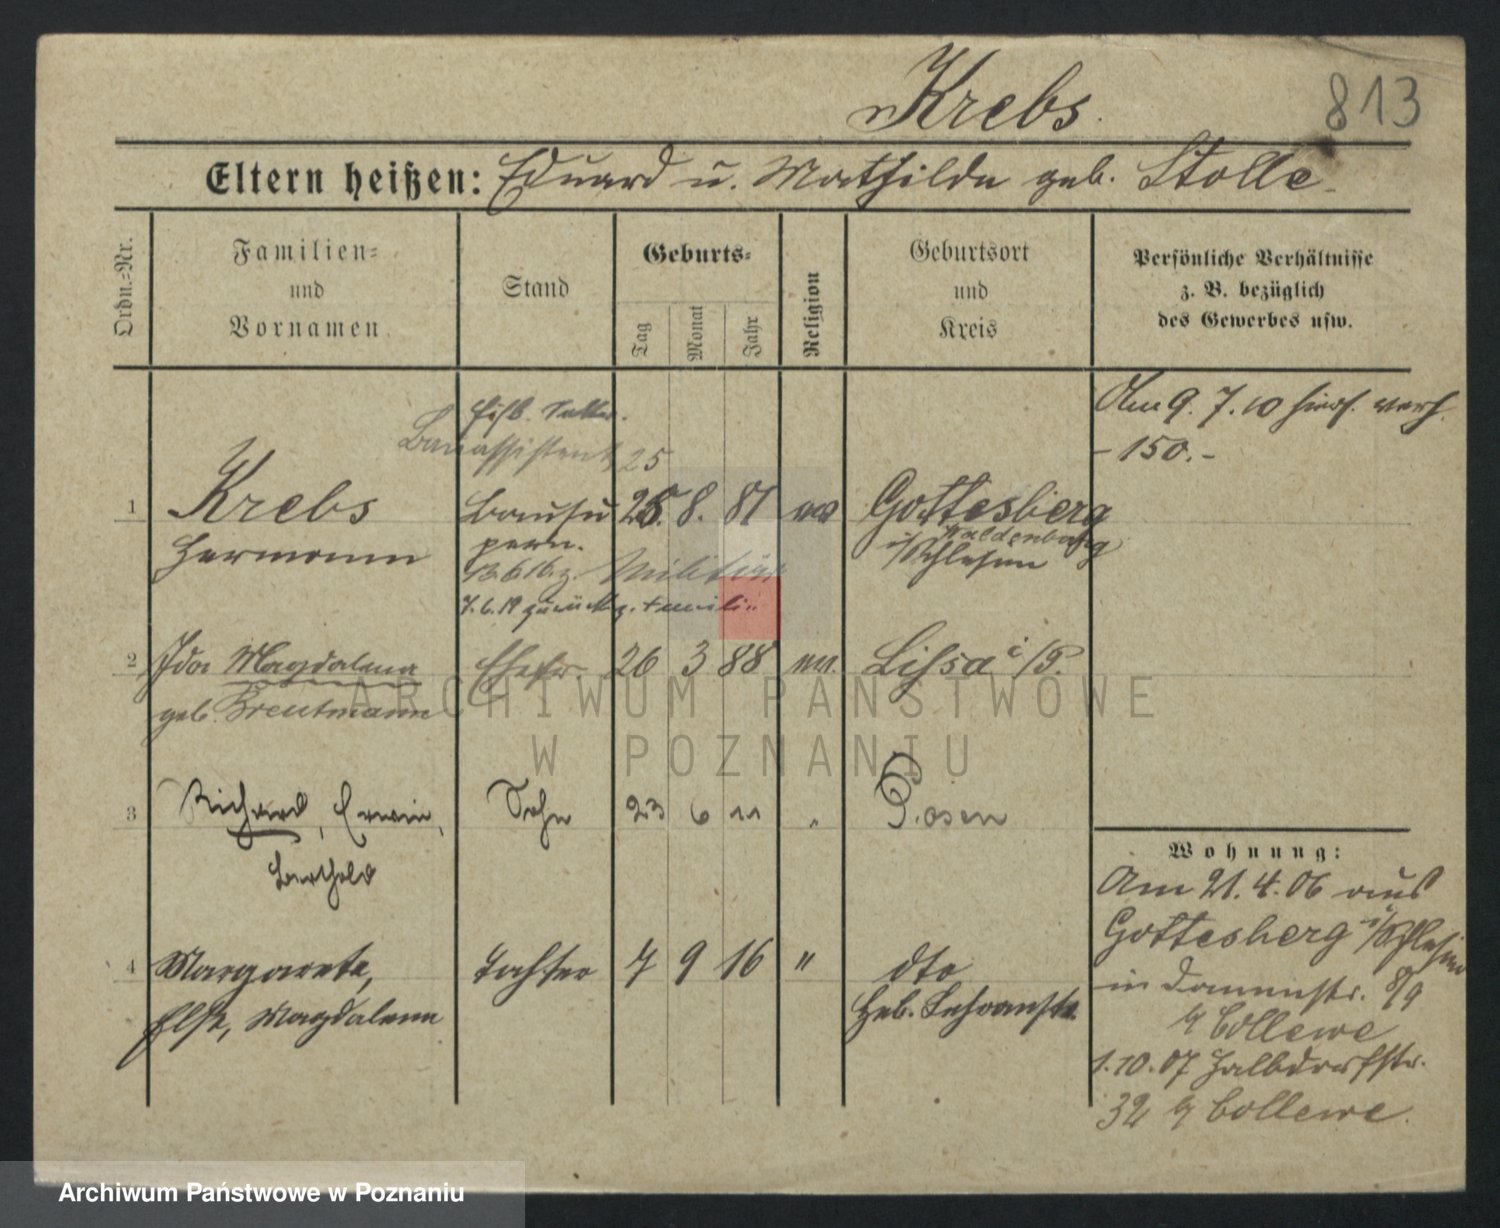 Krebs.
813
Eltern heißen: Eduard u. Mathilde geb. Stolle.
Ordn.=Nr.
Familien=
und
Vornamen.
Stand
Geburts=
Tag
Monat
Jahr
Religion
Geburtsort
und
Kreis
Persönliche Verhältnisse
z. B. bezüglich
des Gewerbes usw.
Am 9. 7. 10 hiers. verh.
- 150.-
Bauassistent 25
1 Krebs Bausu 8. 81 Gottesberg
pern. Waldenburg
Hermann i/Schlesien
Militär
7. 6. 19 zurück z. Familie
2 Ida Magdalena Ehefr. 26 3 88 ev. Lissa i/P.
geb. Breutmann
3 Richard, Erwin, Sohn 23 6 11 " Posen
Berthold
4 Margarete, Tochter 7 9 16 " dto
Else, Magdalena Heb.
Wohnung:
Am 21. 4. 06 aus
Gottesberg i/Schlesien
in Dammstr. 8/9
b/ Collewe
1. 10. 07 Halbdorfstr.
32 b/ Collewe.
ARCHIWUM PAŃSTWOWE
W POZNANIU
Archiwum Państwowe w Poznaniu